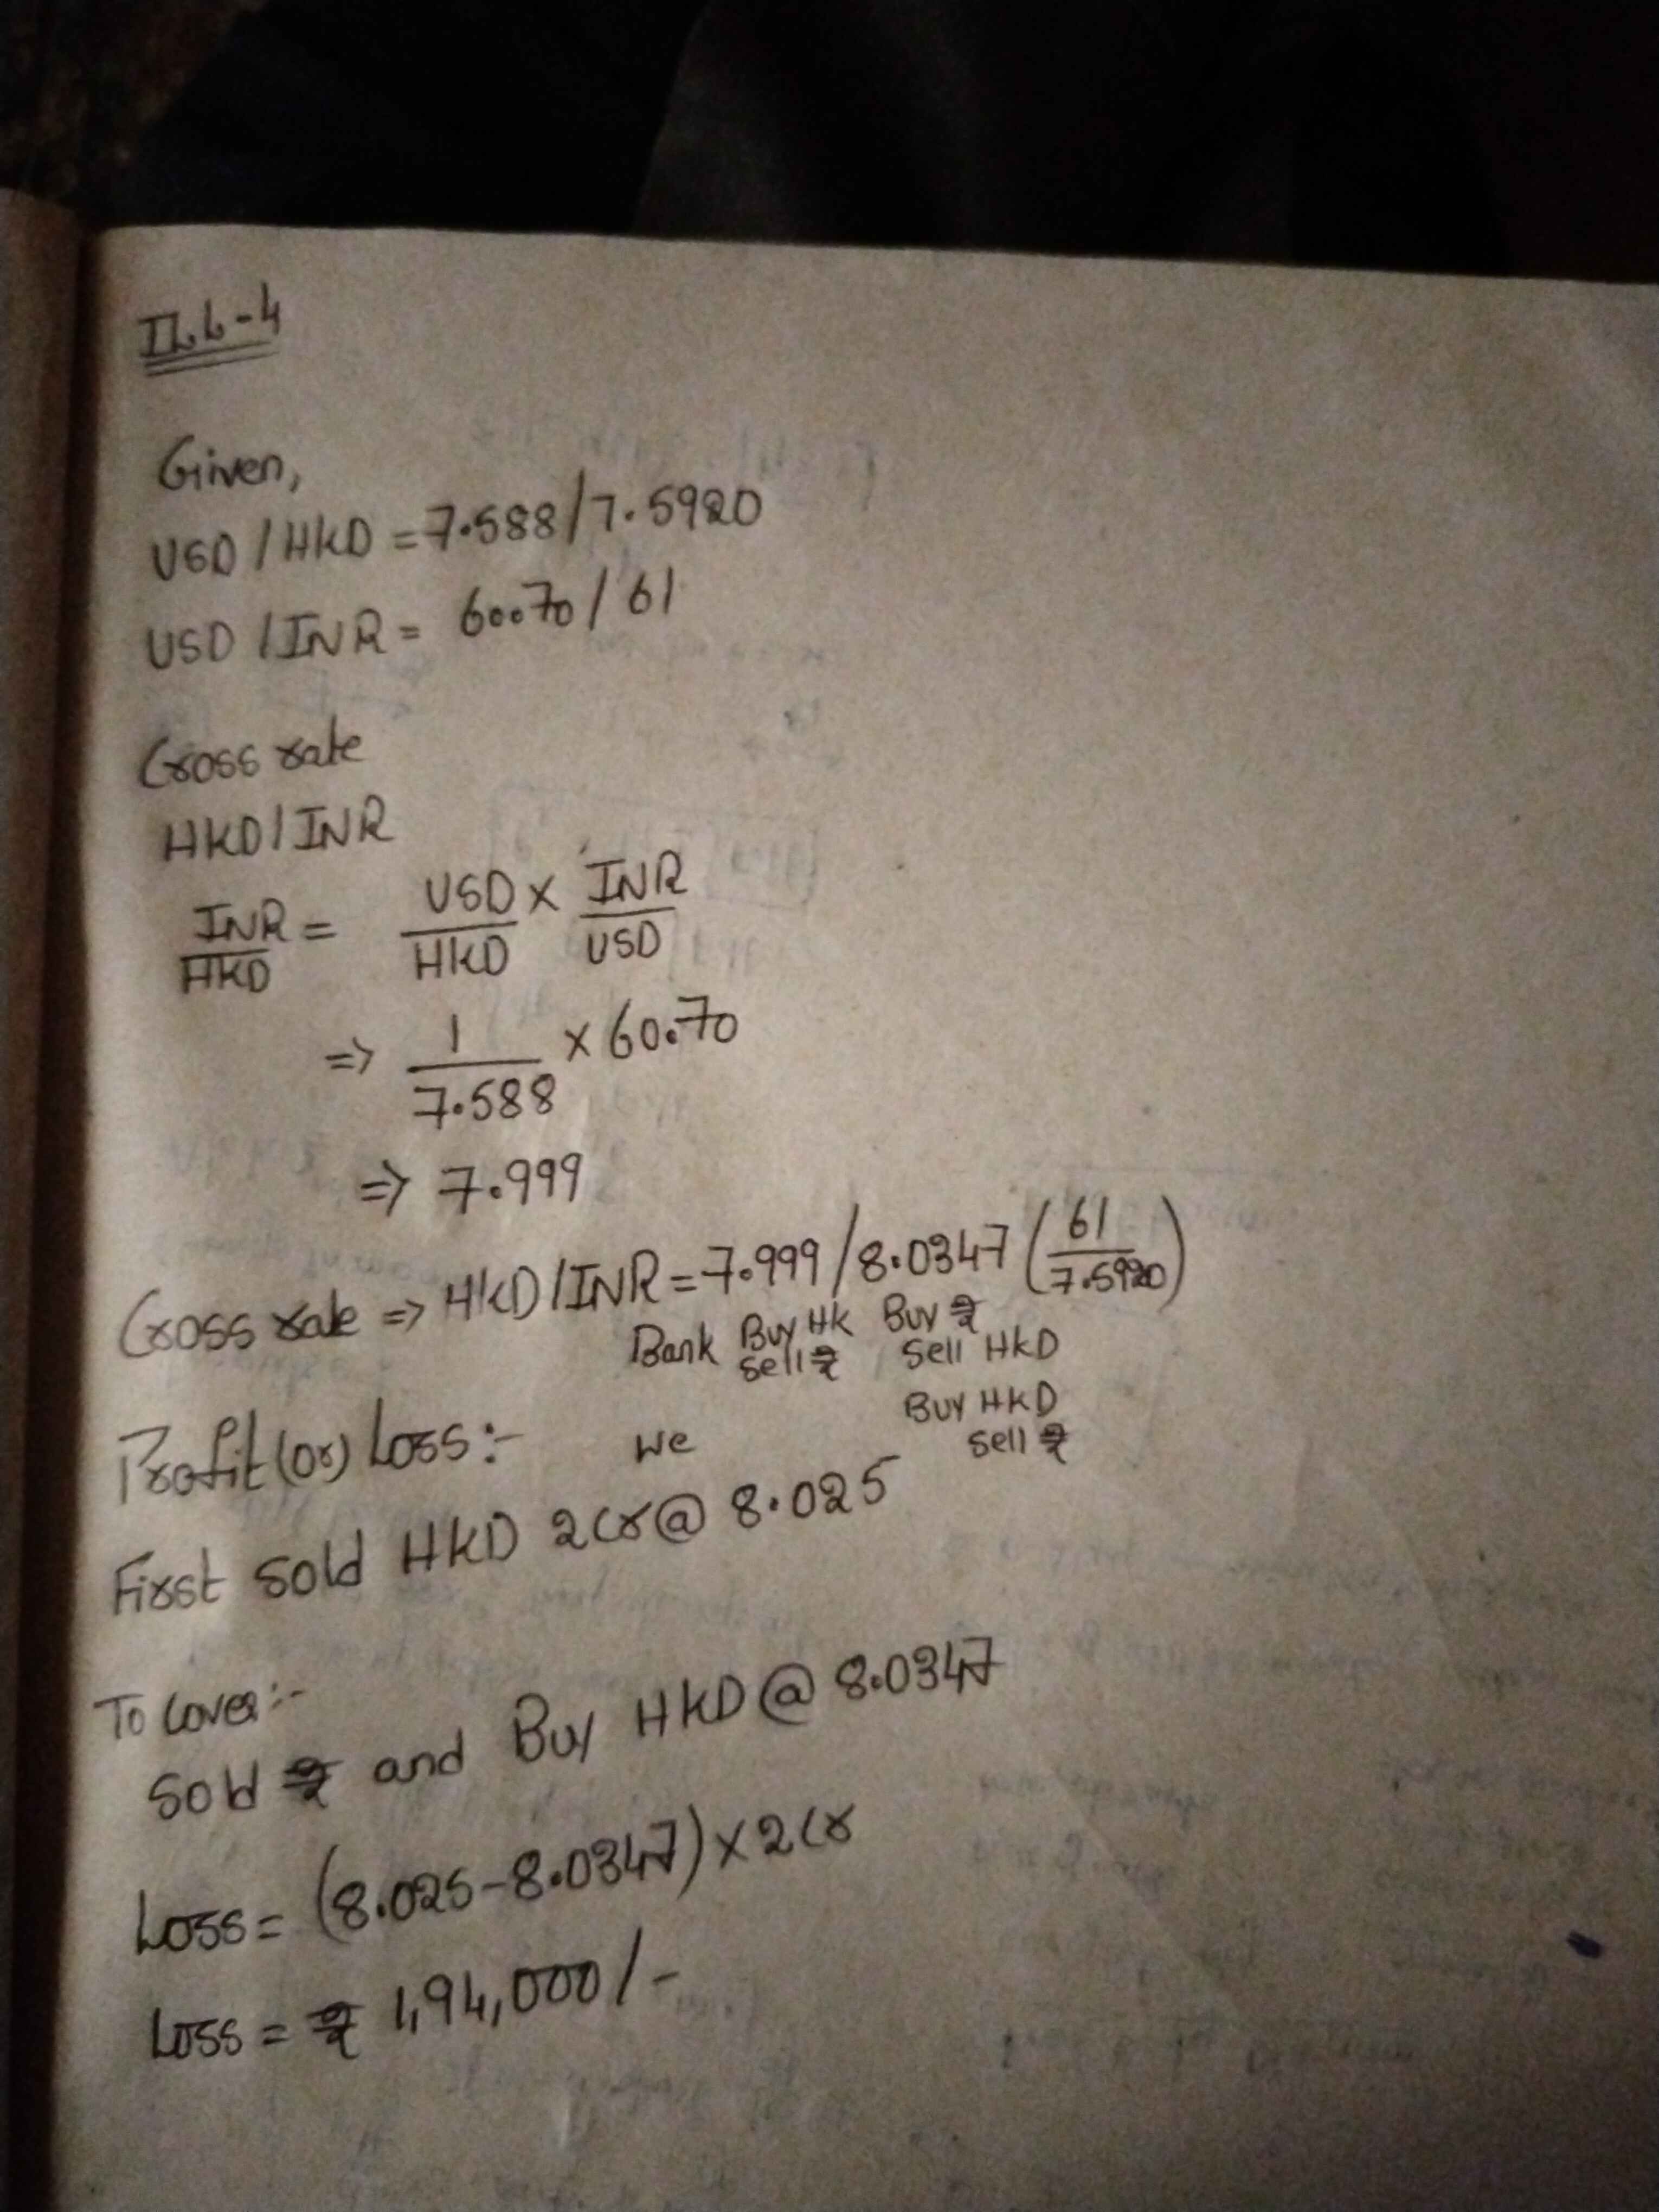 ILL-4
Given,
USD / HKD = 7.588/7.5920
USD / INR = 60.70/61
Cross rate
HKD/INR
INR/HKD = USD/HKD × INR/USD
⇒ 1/7.588 × 60.70
⇒ 7.999
Cross rate ⇒ HKD/INR = 7.999/8.0347 (61/7.5920)
Bank Buy HK Buy ₹
Sell ₹ Sell HKD
Buy HKD
We Sell ₹
Profit (or) Loss:-
First Sold HKD 2cr @ 8.025
To cover:-
Sold ₹ and Buy HKD @ 8.0347
Loss = (8.025-8.0347) × 2cr
Loss = ₹ 1,94,000/-